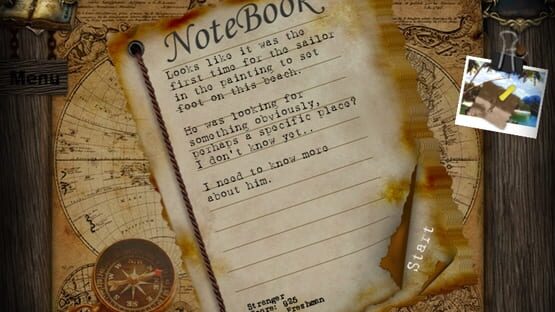 NoteBook
Menu
Looks like it was the
first time for the sailor
in the painting to set
foot on this beach.
He was looking for
something obviously,
perhaps a specific place?
I don't know yet..
I need to know more
about him.
Start
Stranger
Score: 925
Freshman